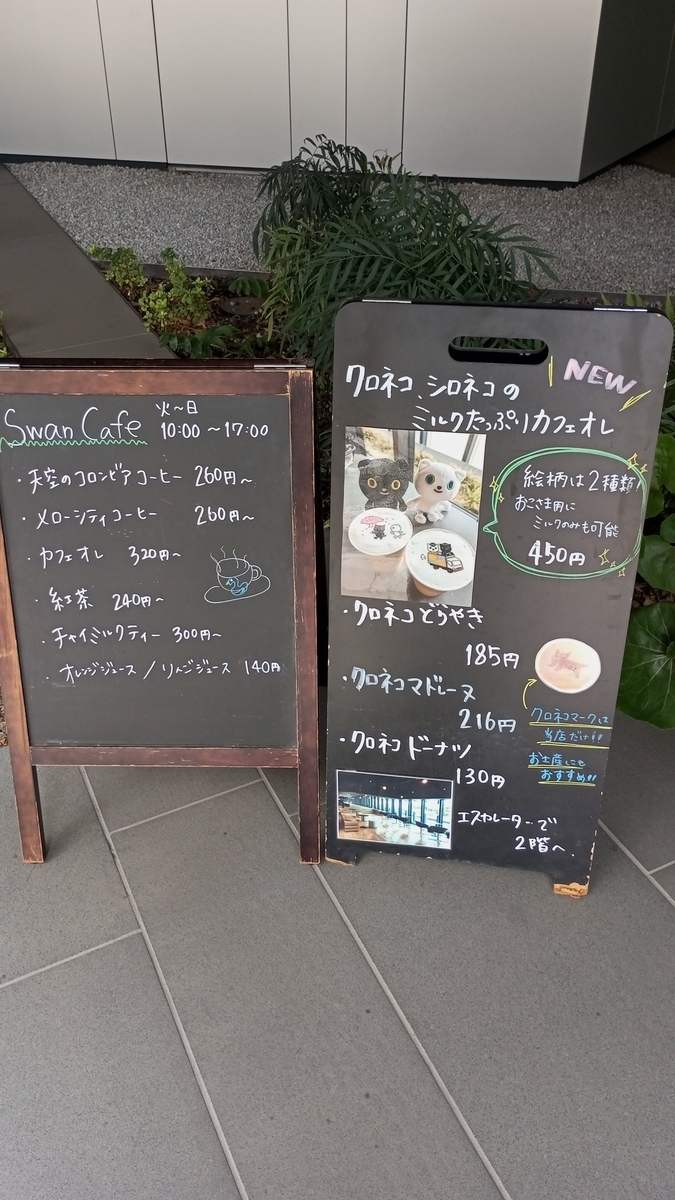 Swan Cafe
火～日
10:00 ～17:00
・天空のコロンビアコーヒー 260円～
・メローシティコーヒー 260円～
・カフェオレ 320円～
・紅茶 240円～
・チャイミルクティー 300円～
・オレンジジュース / りんごジュース 140円
NEW
クロネコ、シロネコの
ミルクたっぷりカフェオレ
絵柄は2種類!
おこさま用に
ミルクのみも可能
450円
・クロネコどらやき
185円
・クロネコマドレーヌ
216円
・クロネコドーナツ
130円
クロネコマークは
当店だけ!!
お土産にも
おすすめ!!
エスカレーターで
2階へ.